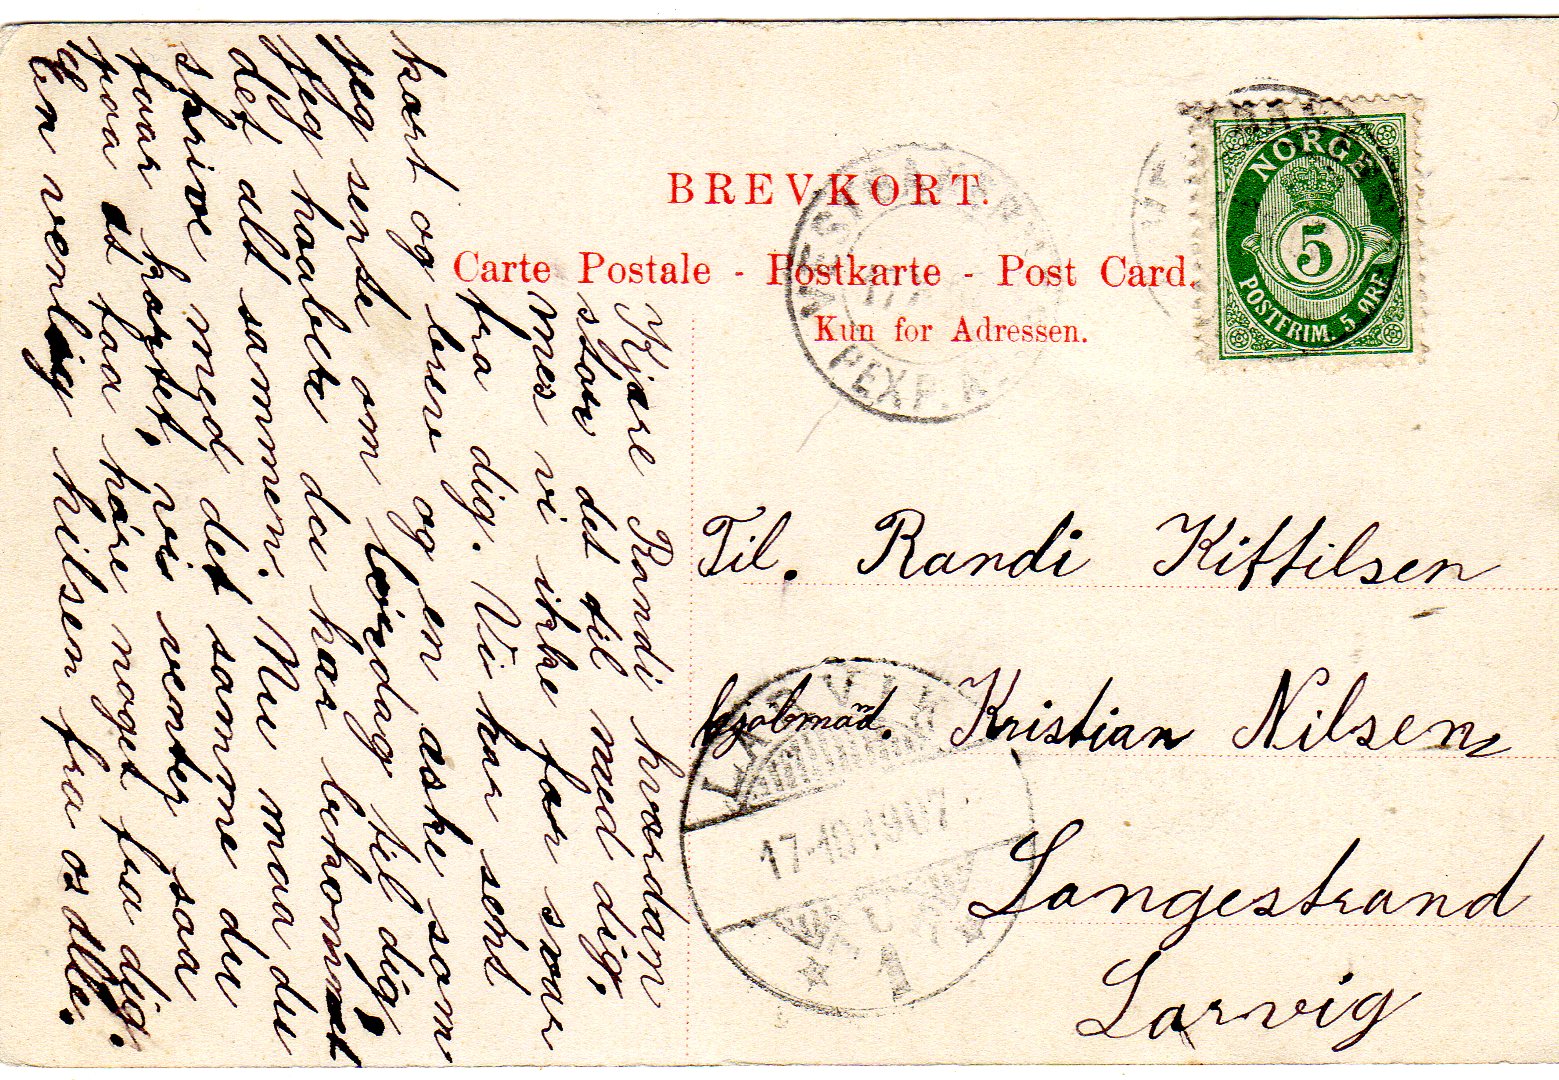 BREVKORT.
Carte Postale - Postkarte - Post Card.
Kun for Adressen.
NORGE
5
POSTFRIM. 5 ØRE
PEXP.
LARVIK
17-10-1907
1
Til. Randi Kittilsen
kjøbmad. Kristian Nilsen
Langestrand
Larvig
Kjære Randi hvordan
staar det til med dig,
mes vi ikke far svar
fra dig. Vi har sent
kort og brev og en æske som
jeg sente om lørdag til dig,
Jeg haaber du har bekommet
det alt sammen. Nu maa du
skrive med det samme du
faar kortet, vi venter saa
paa at faa høre noget fra dig.
En venlig hilsen fra os alle.